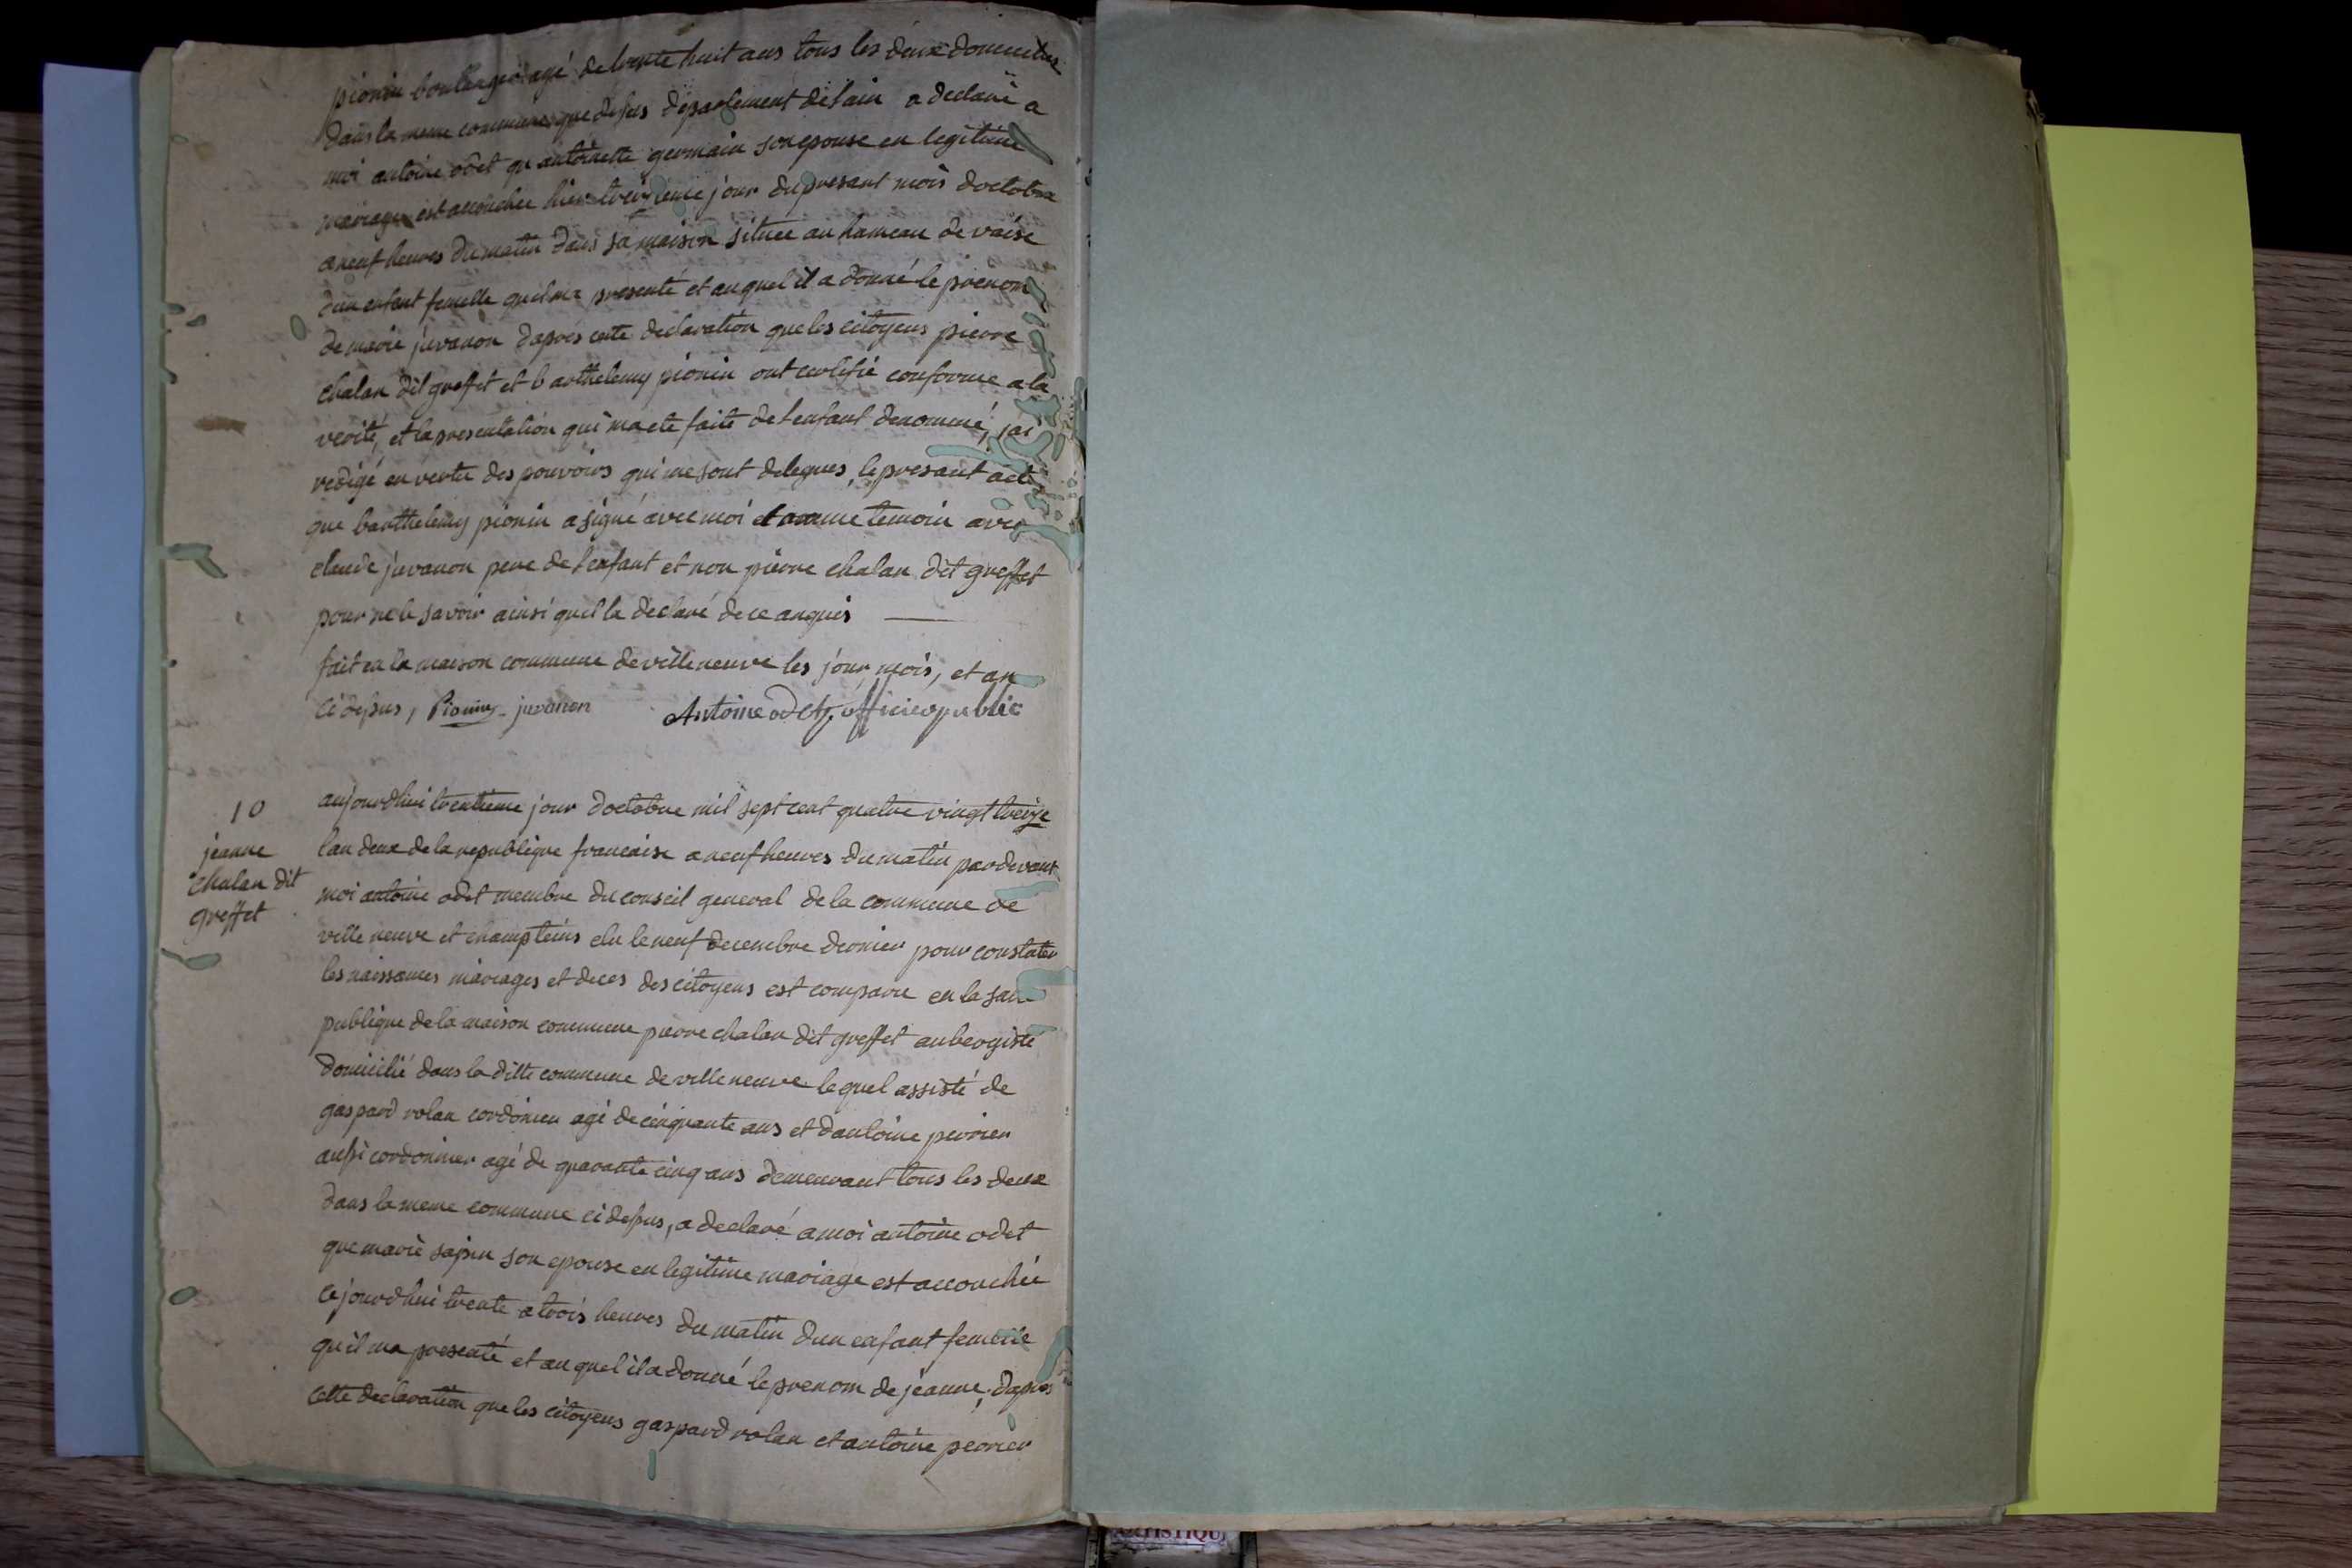 pionin boulanger agé de trente huit ans tous les deux domicilies
dans la meme commune que dessus departement de lain a declaré a
moi antoine odet qu antoinette germain son epouse en legitime
mariage est accouchee hier treizieme jour du presant mois doctobre
a neuf heures du matin dans sa maison située au hameau de vaise
dun enfant femelle quil ma presenté et auquel il a donné le prenom
de marie juvanon dapres cette declaration que les citoyens pierre
chalan dit greffet et barthelemy pionin ont certifié conforme a la
verité, et la presentation qui ma eté faite de lenfant denommé, jai
redigé en vertu des pouvoirs qui me sont delegues, le presant acte
que barthelemy pionin a signé avec moi et comme temoin avec
claude juvanon pere de lenfant et non pierre chalan dit greffet
pour ne le savoir ainsi quil la declaré de ce anquis
fait en la maison commune de villeneuve les jour, mois, et an
ci dessus, Pionin juvanon Antoine odet officier public
10
jeanne
chalan dit
greffet
aujourdhui trentieme jour doctobre mil sept cent quatre vingt treize
lan deux de la republique francaise a neuf heures du matin pardevant
moi antoine odet membre du conseil general de la commune de
ville neuve et champteins elu le neuf decembre dernier pour constater
les naissances mariages et deces des citoyens est comparu en la salle
publique de la maison commune pierre chalan dit greffet aubergiste
domicilié dans la ditte commune de villeneuve lequel assisté de
gaspard rolan cordonier agé de cinquante ans et dantoine perrier
aussi cordonnier agé de quarante cinq ans demeurant tous les deux
dans la meme commune ci dessus, a declaré a moi antoine odet
que marie sapin son epouse en legitime mariage est accouchée
cejourdhui trente a trois heures du matin dun enfant femelle
quil ma presenté et auquel il a donné le prenom de jeanne; dapres
cette declaration que les citoyens gaspard rolan et antoine perrier